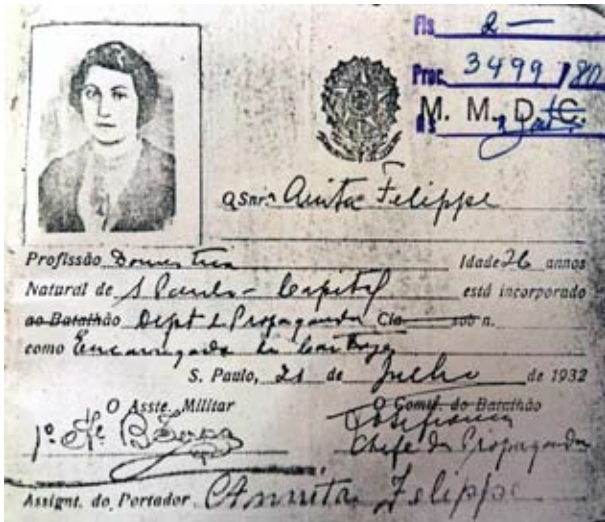 Fls 2 —
Proc. 3499 / 80
M. M. D. C.
a Snr.ª Anita Felippe
Profissão Domestica Idade 26 annos
Natural de S Paulo - Capital está incorporado
ao Batalhão Dept de Propaganda Cia sob n.
como Encarregada da
S. Paulo, 21 de Julho de 1932
O Asste. Militar O Comte. do Batalhão
1º
Chefe da Propaganda
Assignt. do Portador Annita Felippe